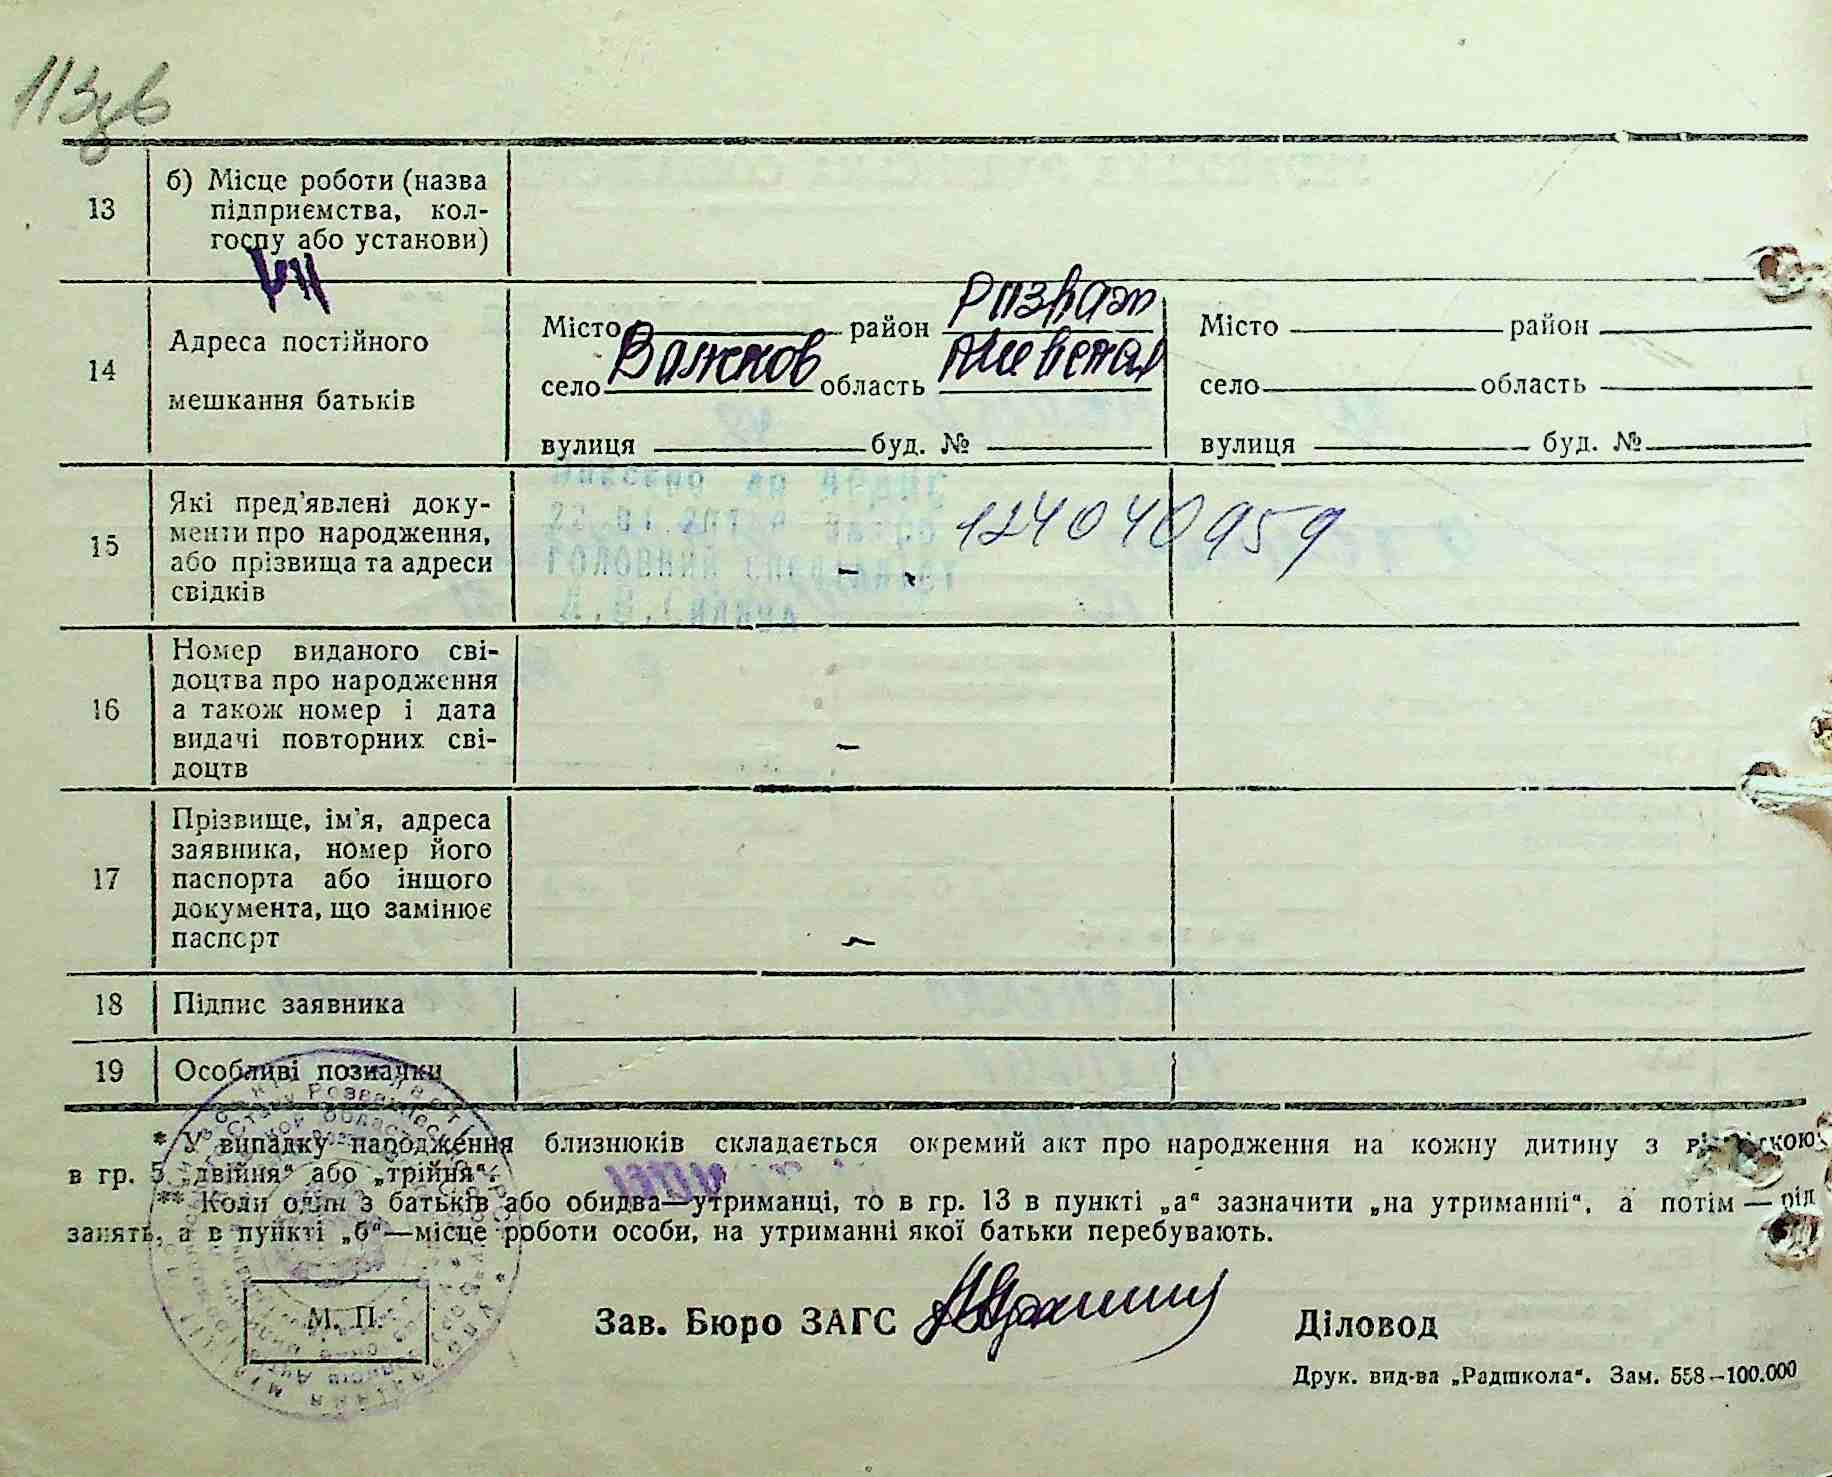 13
б) Місце роботи (назва
підприємства, кол-
госпу або установи)
14
Адреса постійного
мешкання батьків
Місто район Розваж
село Важков область
вулиця буд. №
Місто район
село область
вулиця буд. №
15
Які пред'явлені доку-
менти про народження,
або прізвища та адреси
свідків
124040959
16
Номер виданого сві-
доцтва про народження
а також номер і дата
видачі повторних сві-
доцтв
17
Прізвище, ім'я, адреса
заявника, номер його
паспорта або іншого
документа, що замінює
паспорт
18 Підпис заявника
19 Особливі позначки
* У випадку народження близнюків складається окремий акт про народження на кожну дитину з
в гр. 5 „двійня“ або „трійня“.
** Коли один з батьків або обидва—утриманці, то в гр. 13 в пункті „а“ зазначити „на утриманні“, а потім — рід
занять, а в пункті „б“—місце роботи особи, на утриманні якої батьки перебувають.
М. П.
Зав. Бюро ЗАГС
Діловод
Друк. вид-ва „Радшкола“. Зам. 558—100.000